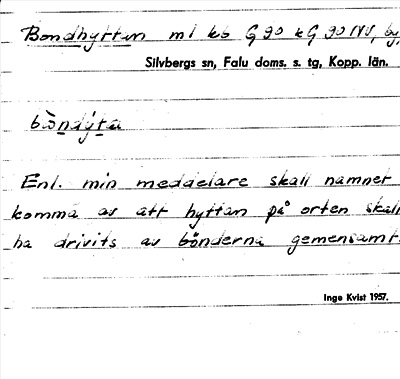 Bondhyttan ml kb G 90 k G 90 NV, by,
Silvbergs sn, Falu doms. s. tg, Kopp. län.
bòndy̆ta
Enl. min meddelare skall namnet
komma av att hyttan på orten skall
ha drivits av bönderna gemensamt.
Inge Kvist 1957.